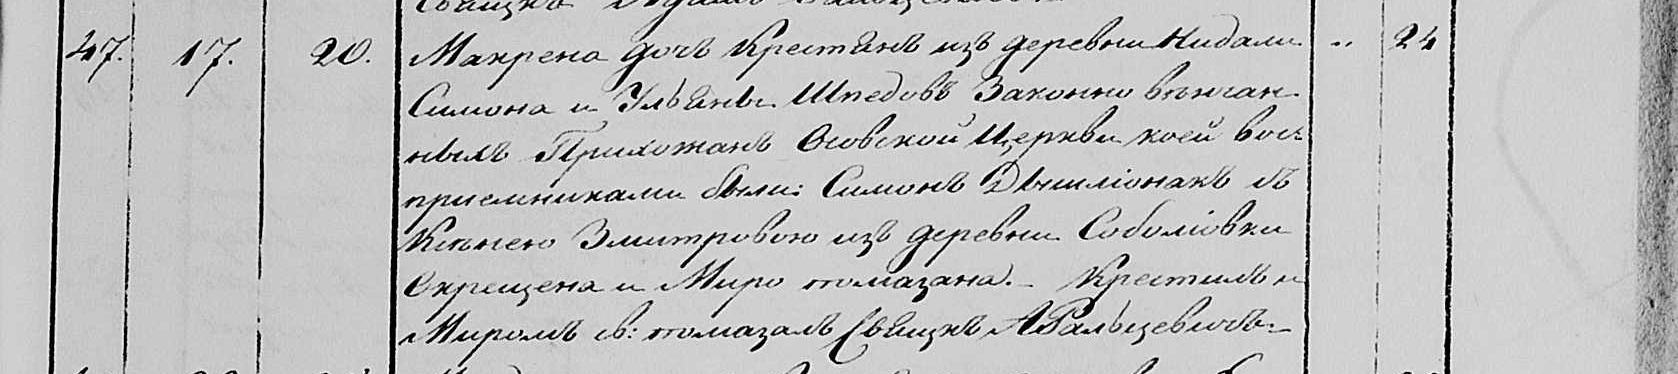 47. 17. 20. Макрена дочь Крестьянъ изъ деревни Нидали „ 24
Симона и Ульяны Шпедовъ Законно вѣнчан-
ныхъ Прихожанъ Осовской Церкви коей вос-
приемниками были: Симонъ Дышліонакъ съ
Ксѣнею Змитровою изъ деревни Соболіовки
Окрещена и Миро помазана. – Крестилъ и
Миромъ св: помазалъ Свящнъ А Вальцевичъ:-